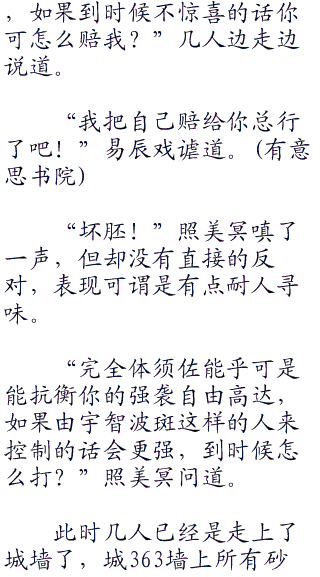 ，如果到时候不惊喜的话你
可怎么赔我？”几人边走边
说道。
“我把自己赔给你总行
了吧！”易辰戏谑道。(有意
思书院)
“坏胚！”照美冥嗔了
一声，但却没有直接的反
对，表现可谓是有点耐人寻
味。
“完全体须佐能乎可是
能抗衡你的强袭自由高达，
如果由宇智波斑这样的人来
控制的话会更强，到时候怎
么打？”照美冥问道。
此时几人已经是走上了
城墙了，城363墙上所有砂